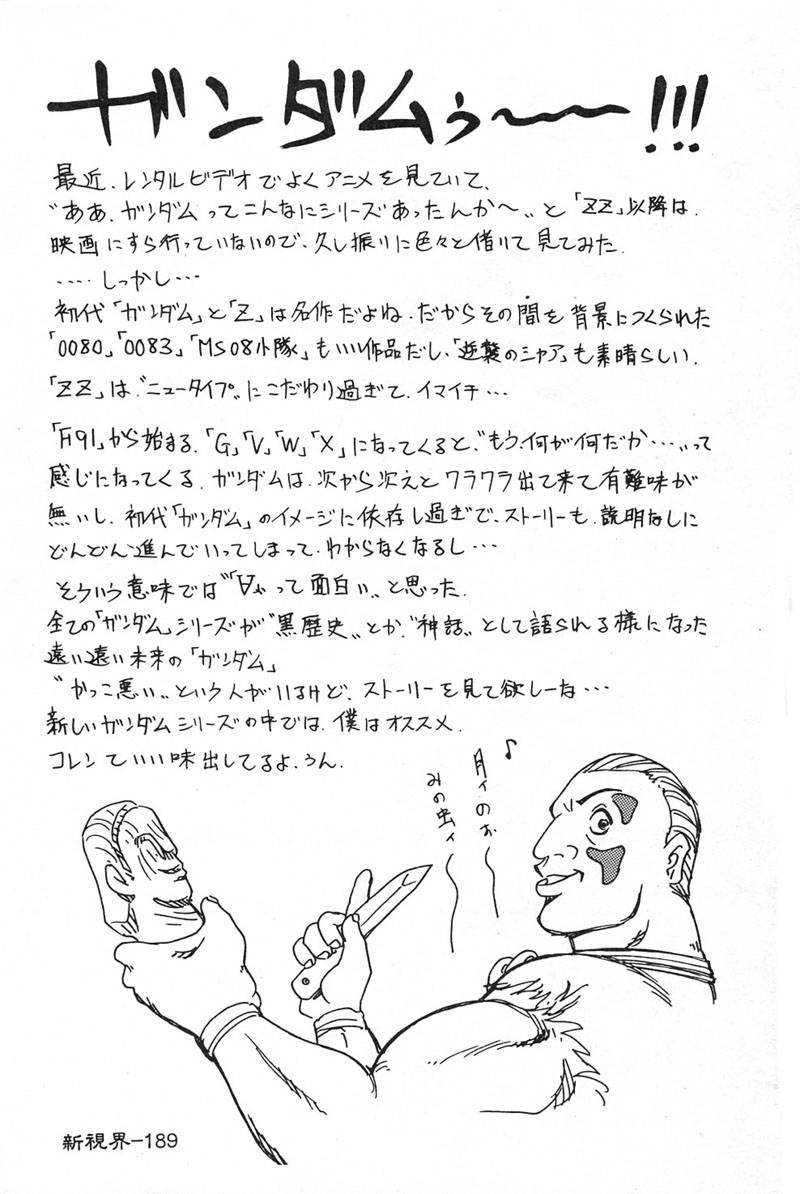 ガンダムぅ〜〜〜!!!
最近、レンタルビデオでよくアニメを見ていて、
“ああ、ガンダムってこんなにシリーズあったんか〜”と「ZZ」以降は、
映画にすら行っていないので、久し振りに色々と借りて見てみた。
‥‥しっかし…
初代「ガンダム」と「Z」は名作だよね。だからその間を背景につくられた
「0080」「0083」「MS08小隊」もいい作品だし、「逆襲のシャア」も素晴らしい。
「ZZ」は“ニュータイプ”にこだわり過ぎて、イマイチ…
「F91」から始まる、「G」「V」「W」「X」になってくると、“もう、何が何だか…”って
感じになってくる。ガンダムは、次から次えとワラワラ出て来て有難味が
無いし、初代「ガンダム」のイメージに依存し過ぎで、ストーリーも、説明なしに
どんどん進んでいってしまって、わからなくなるし…
そういう意味では“∀”って面白い”と思った。
全ての「ガンダム」シリーズが“黒歴史”とか、“神話”として語られる様になった
遠い遠い未来の「ガンダム」
“かっこ悪い”という人がいるけど、ストーリーを見て欲しーな…
新しいガンダムシリーズの中では、僕はオススメ。
コレンていい味出してるよ。うん。
♪
月ィのぉ〜
みの虫ィ〜
新視界-189